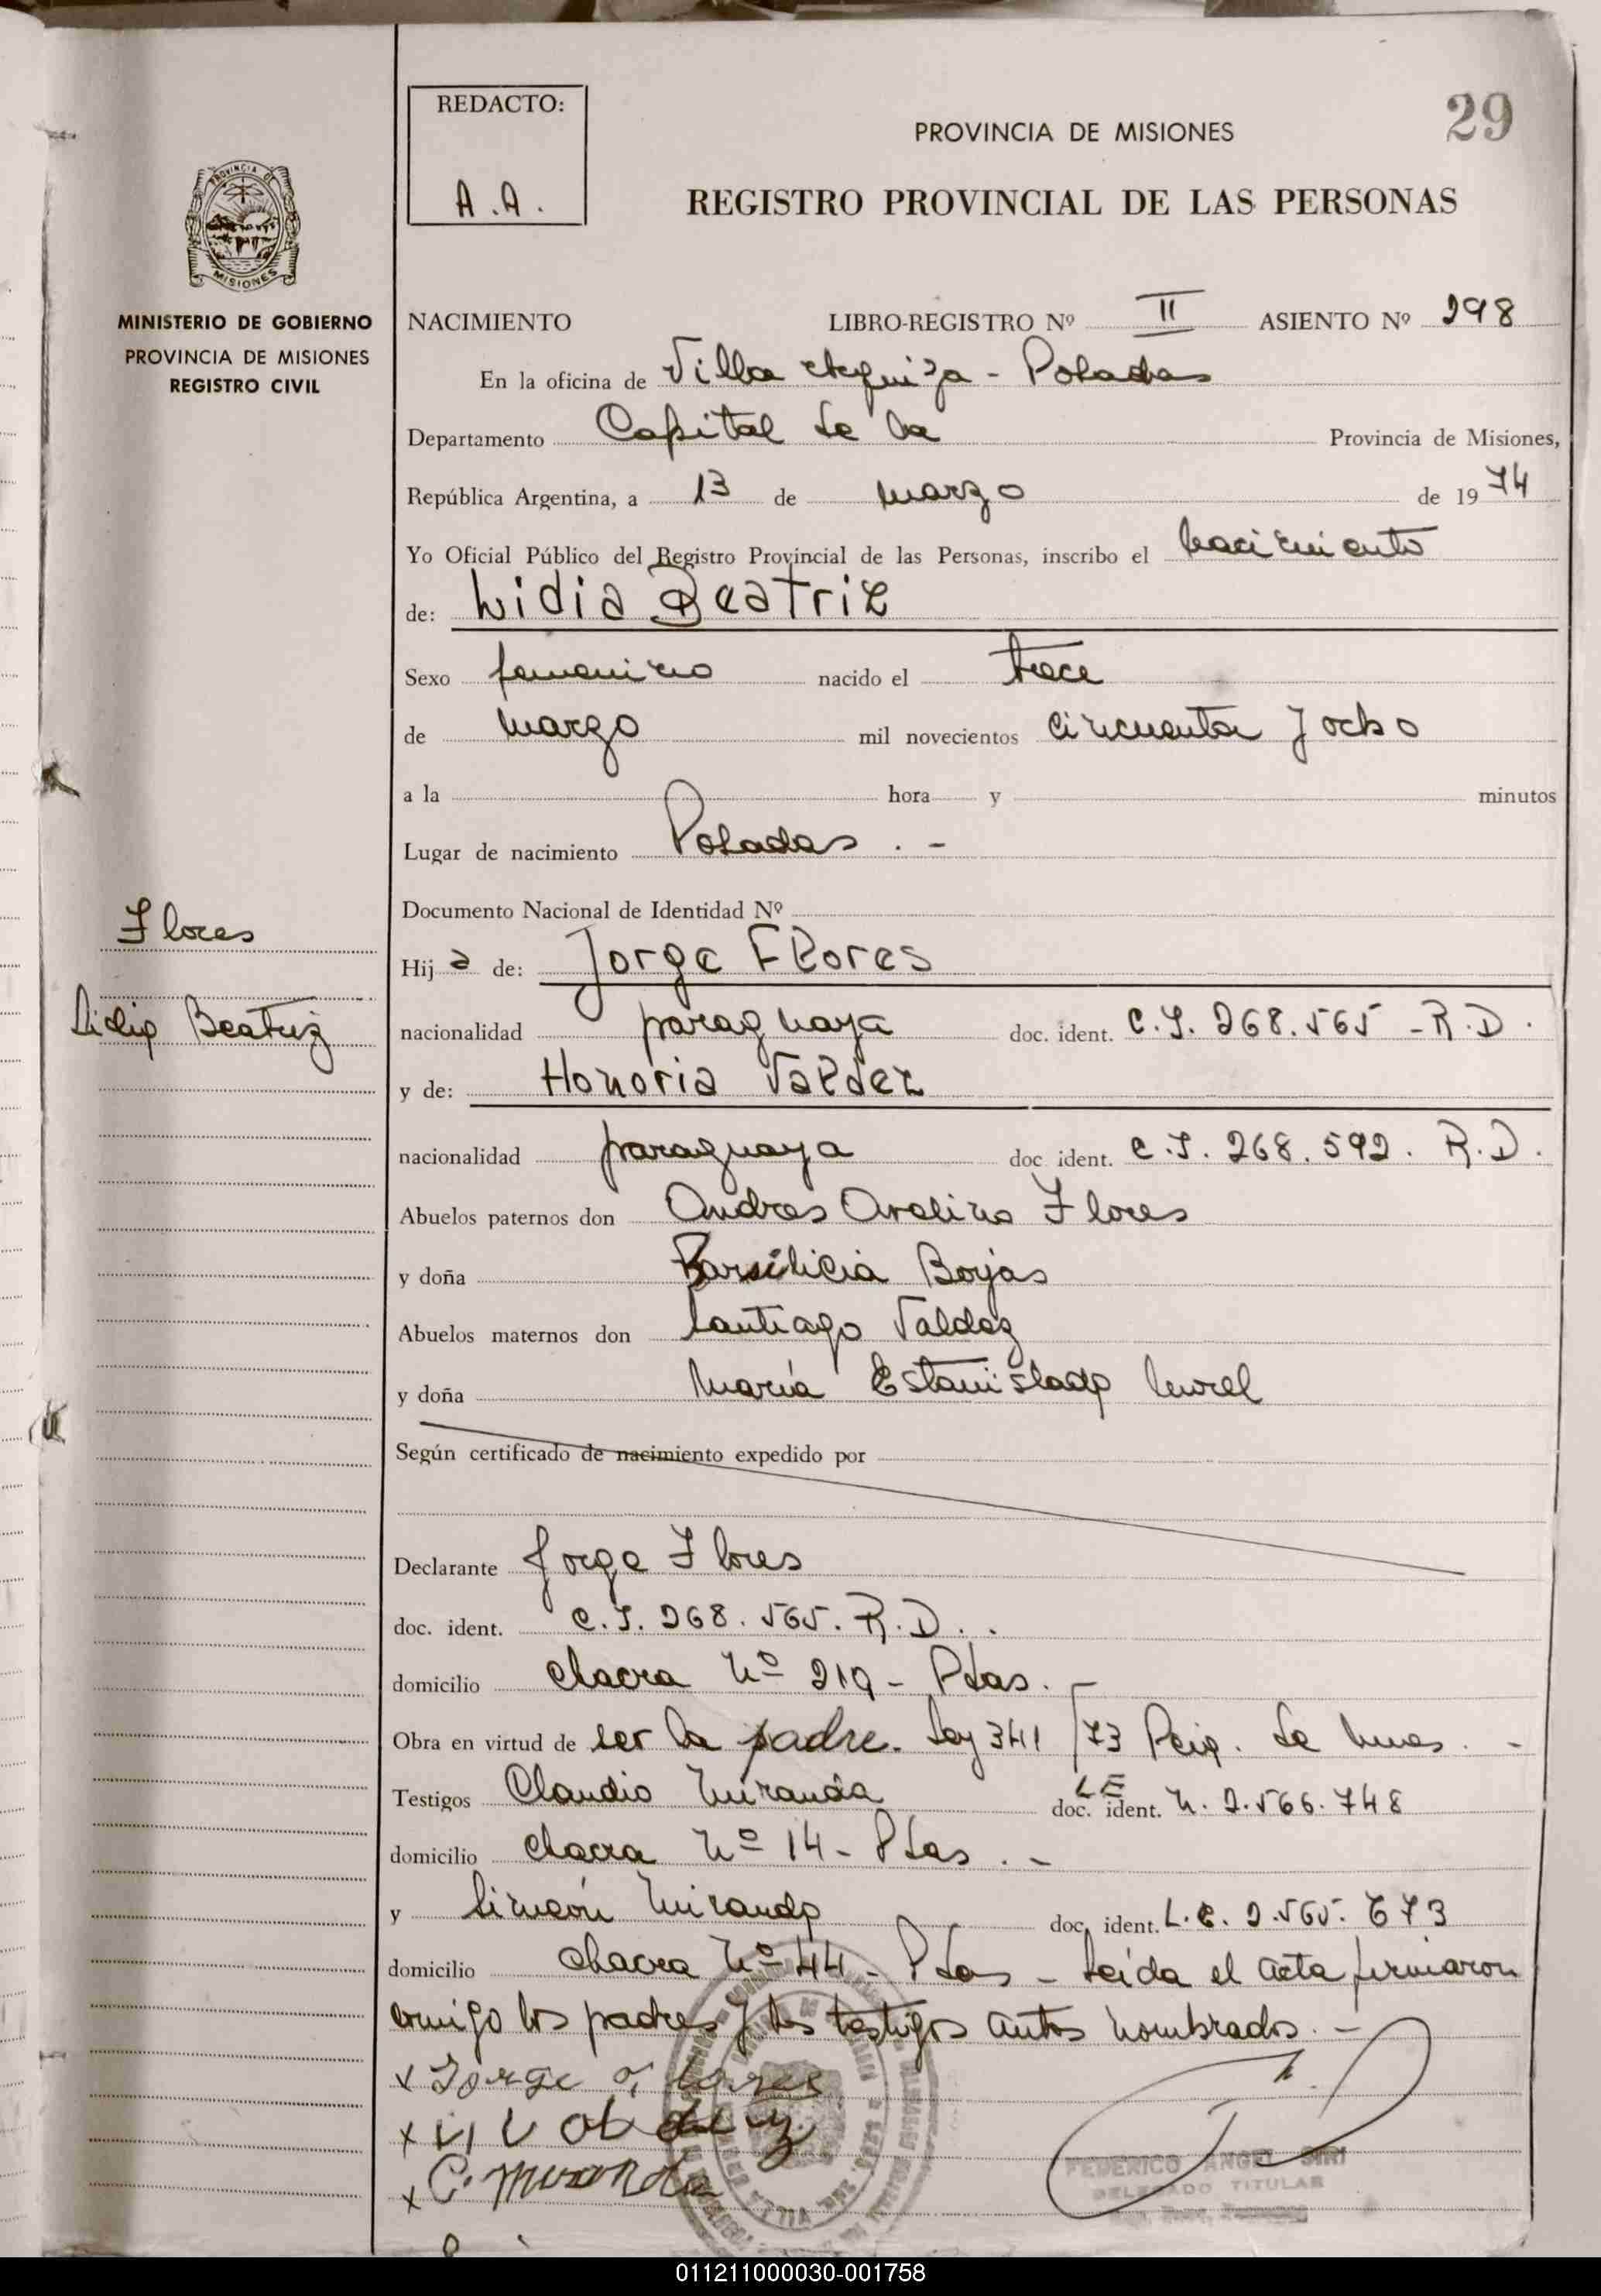 29
REDACTO:
A.A.
PROVINCIA DE MISIONES
REGISTRO PROVINCIAL DE LAS PERSONAS
PROVINCIA DE
MISIONES
MINISTERIO DE GOBIERNO
PROVINCIA DE MISIONES
REGISTRO CIVIL
NACIMIENTO LIBRO-REGISTRO Nº II ASIENTO Nº 298
En la oficina de Villa - Posadas
Departamento Capital de la Provincia de Misiones,
República Argentina, a 13 de marzo de 1974
Yo Oficial Público del Registro Provincial de las Personas, inscribo el nacimiento
de: Lidia Beatriz
Sexo femenino nacido el trece
de marzo mil novecientos cincuenta y ocho
a la hora y minutos
Lugar de nacimiento Posadas . -
Documento Nacional de Identidad Nº
Flores
Lidia Beatriz
Hija de: Jorge Flores
nacionalidad paraguaya doc. ident. C.I. 268.565 - R.D.
y de: Honoria Valdez
nacionalidad paraguaya doc ident. C.I. 268.592. R.D.
Abuelos paternos don Andres Avelino Flores
y doña Borjas
Abuelos maternos don Santiago Valdez
y doña María Estanislada
Según certificado de nacimiento expedido por
Declarante Jorge Flores
doc. ident. C.I. 268.565. R.D..
domicilio chacra Nº 219 - Pdas. -
Obra en virtud de ser la padre. Ley 341/73 -
Testigos Claudio Miranda doc. ident. L E N. 2.566.748
domicilio chacra Nº 14 - Pdas . -
y Simeón Miranda doc. ident. L.E. 2.565.673
domicilio chacra Nº 44 - Pdas - Leída el acta firmaron
conmigo los padres y los testigos antes nombrados. -
x Jorge Flores
x
x C. Miranda
FEDERICO ANGEL SIRI
DELEGADO TITULAR
011211000030-001758